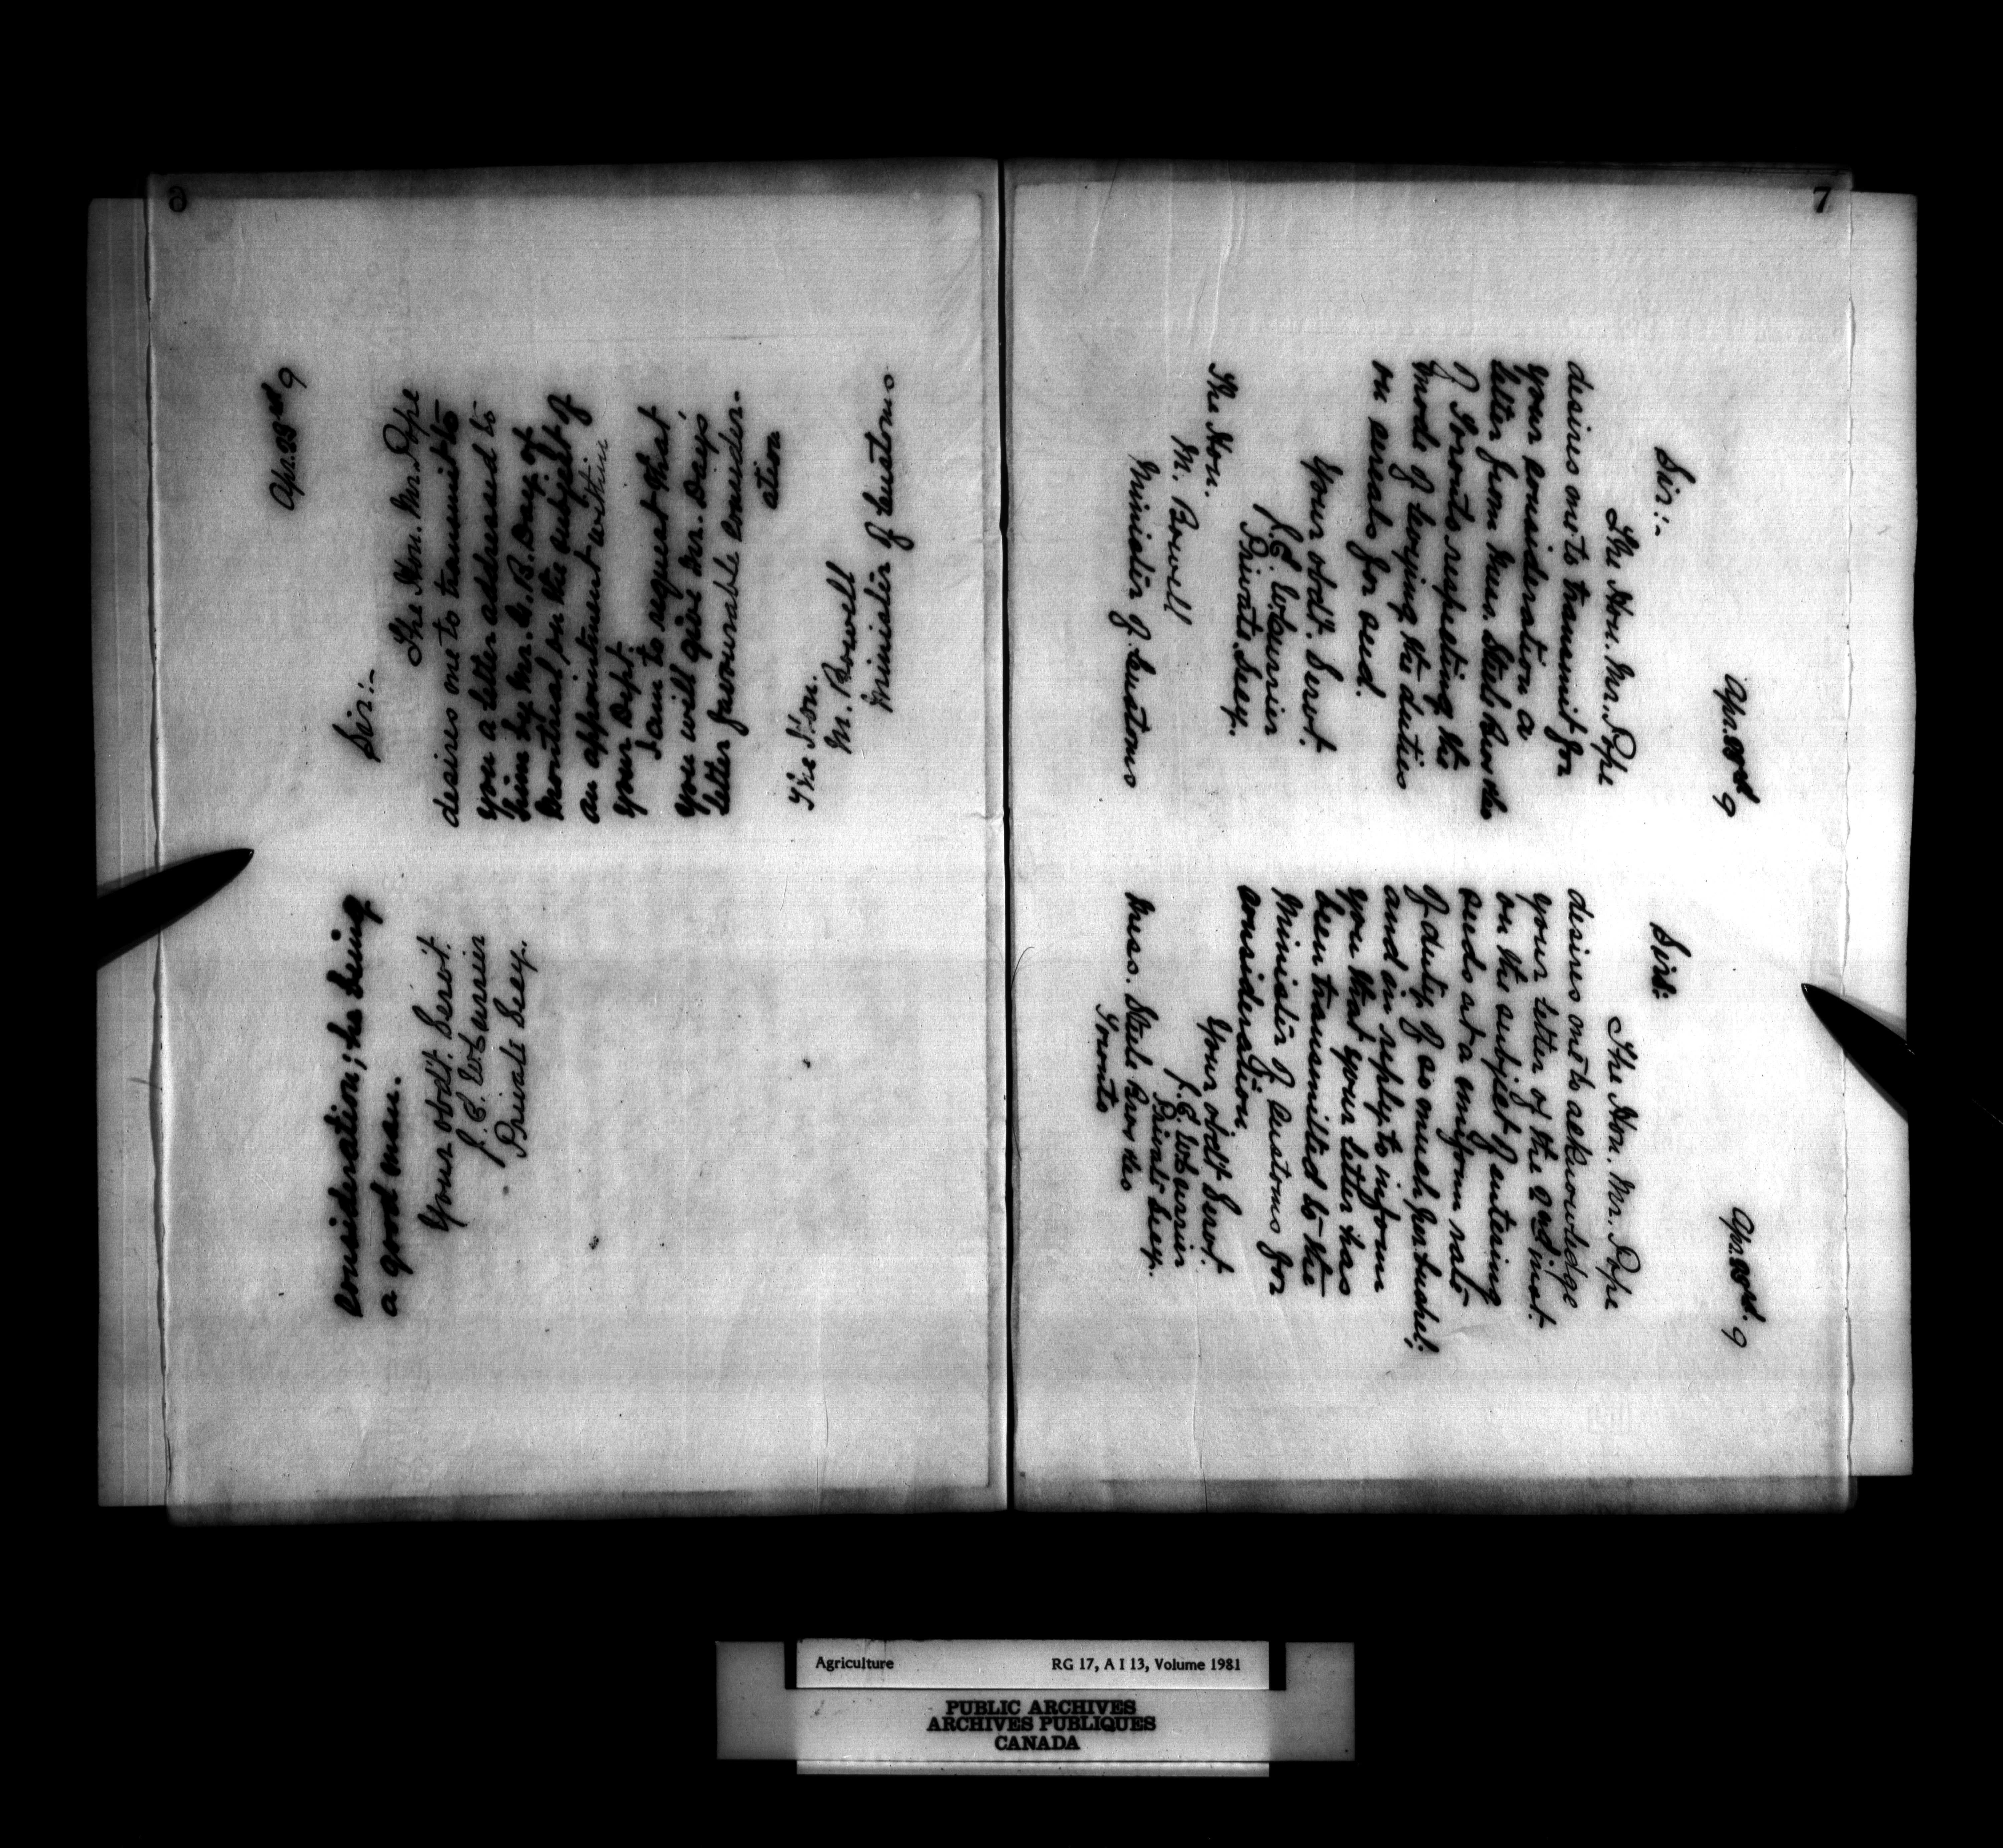 6
Sir:-
The Hon. Mr. Pope
desires me to transmit to
you a letter addressed to
him by Mr. C. B. Day of
Montreal on the subject of
an appointment within
your Dept.
I am to request that
you will give Mr. Day's
letter favourable consider-
ation
The Hon.
M. Bowell
Minister of Customs
consideration; he being
a good man.
Your obdt. Servt.
Private Secy.
7
Sir:-
The Hon. Mr. Pope
desires me to transmit for
your consideration a
letter from Mess. Steele Bros &co
of Toronto respecting the
mode of levying the duties
on
Your obdt. Servt.
Private Secy.
The Hon.
M. Bowell
Minister of Customs
Sirs:
The Hon. Mr. Pope
desires me to acknowledge
your letter of the 2nd inst.
on the subject of entering
seeds at a uniform rate
of duty of so much per bushel;
and in reply to inform
you that your letter has
been transmitted to the
Minister of Customs for
consideration
Your obdt Servt.
Private Secy.
Mess. Steele Bros &co
Toronto
Agriculture RG 17, A I 13, Volume 1981
PUBLIC ARCHIVES
ARCHIVES PUBLIQUES
CANADA